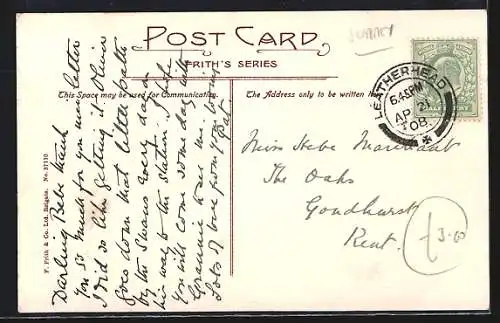 SURREY
POST CARD
FRITH'S SERIES
This Space may be used for Communication.
The Address only to be written
LEATHERHEAD
6.45PM
AP 21
08
Darling Bebe thank
you so much for you nice letter
I did so like getting it. Oliver
goes down that little path
by the Swans every day on
his way to the station. I hope
you will come some day with
Grannie to see me
Lots of love from your loving
Pat.
F. Frith & Co. Ltd. Reigate. No. 57110
Miss Hebe Marchant
The Oaks
Goudhurst
Kent.
£3-00